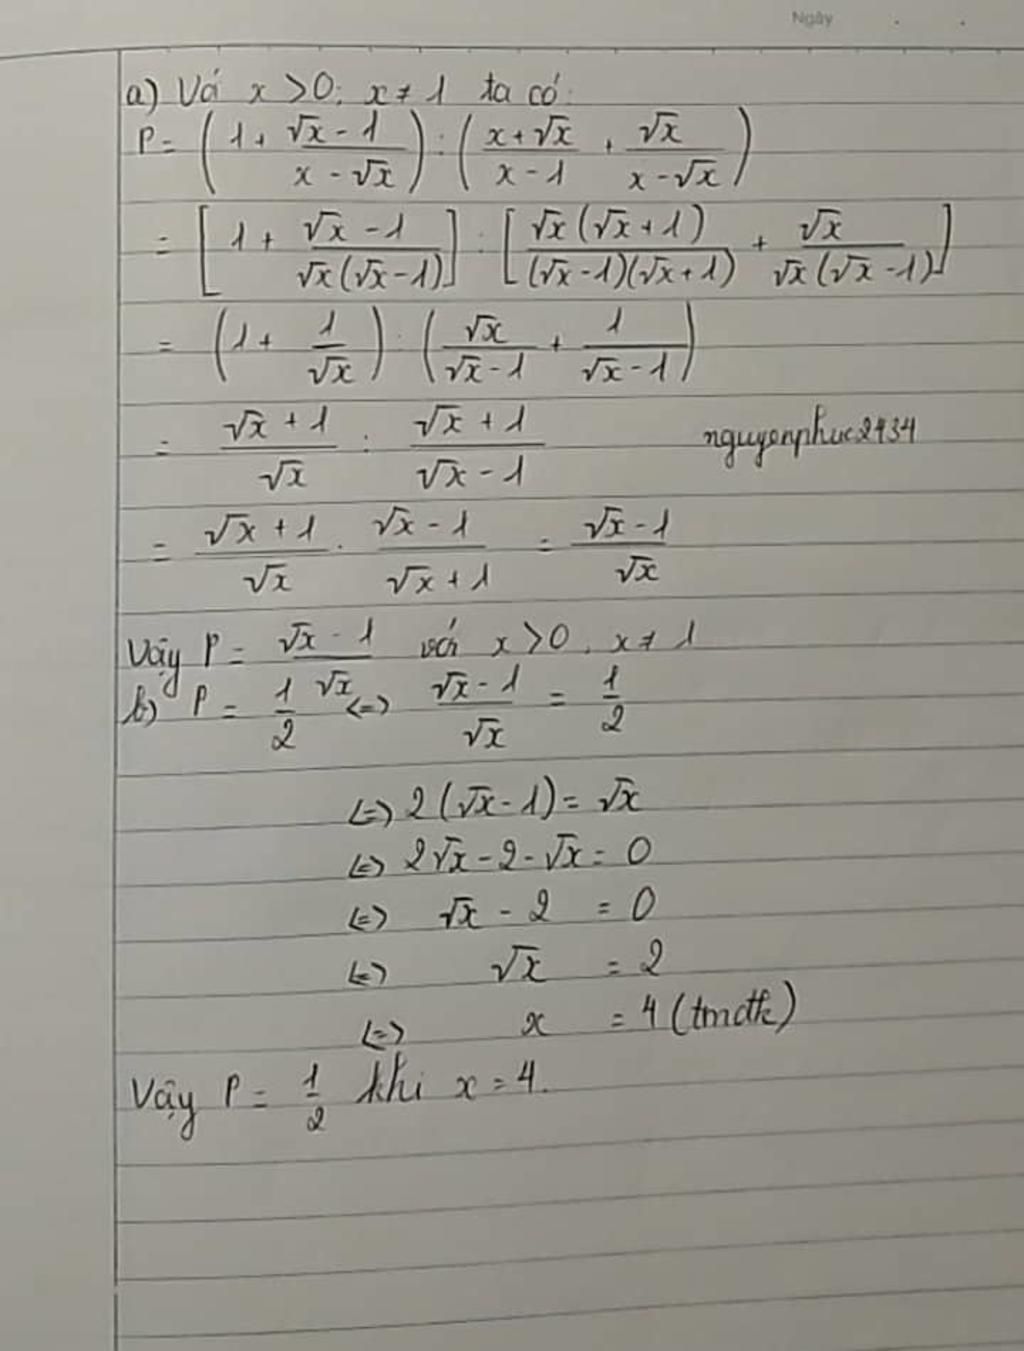 Ngày
a) Với x > 0; x ≠ 1 ta có:
P = (1 + (√x - 1)/(x - √x)) : ((x + √x)/(x - 1) + √x/(x - √x))
= [1 + (√x - 1)/(√x(√x - 1))] : [√x(√x + 1)/((√x - 1)(√x + 1)) + √x/(√x(√x - 1))]
= (1 + 1/√x) : (√x/(√x - 1) + 1/(√x - 1))
= (√x + 1)/√x : (√x + 1)/(√x - 1)
nguyenphuc2434
= (√x + 1)/√x . (√x - 1)/(√x + 1) = (√x - 1)/√x
Vậy P = (√x - 1)/√x với x > 0, x ≠ 1
b) P = 1/2 <=> (√x - 1)/√x = 1/2
<=> 2(√x - 1) = √x
<=> 2√x - 2 - √x = 0
<=> √x - 2 = 0
<=> √x = 2
<=> x = 4 (tmđk)
Vậy P = 1/2 khi x = 4.